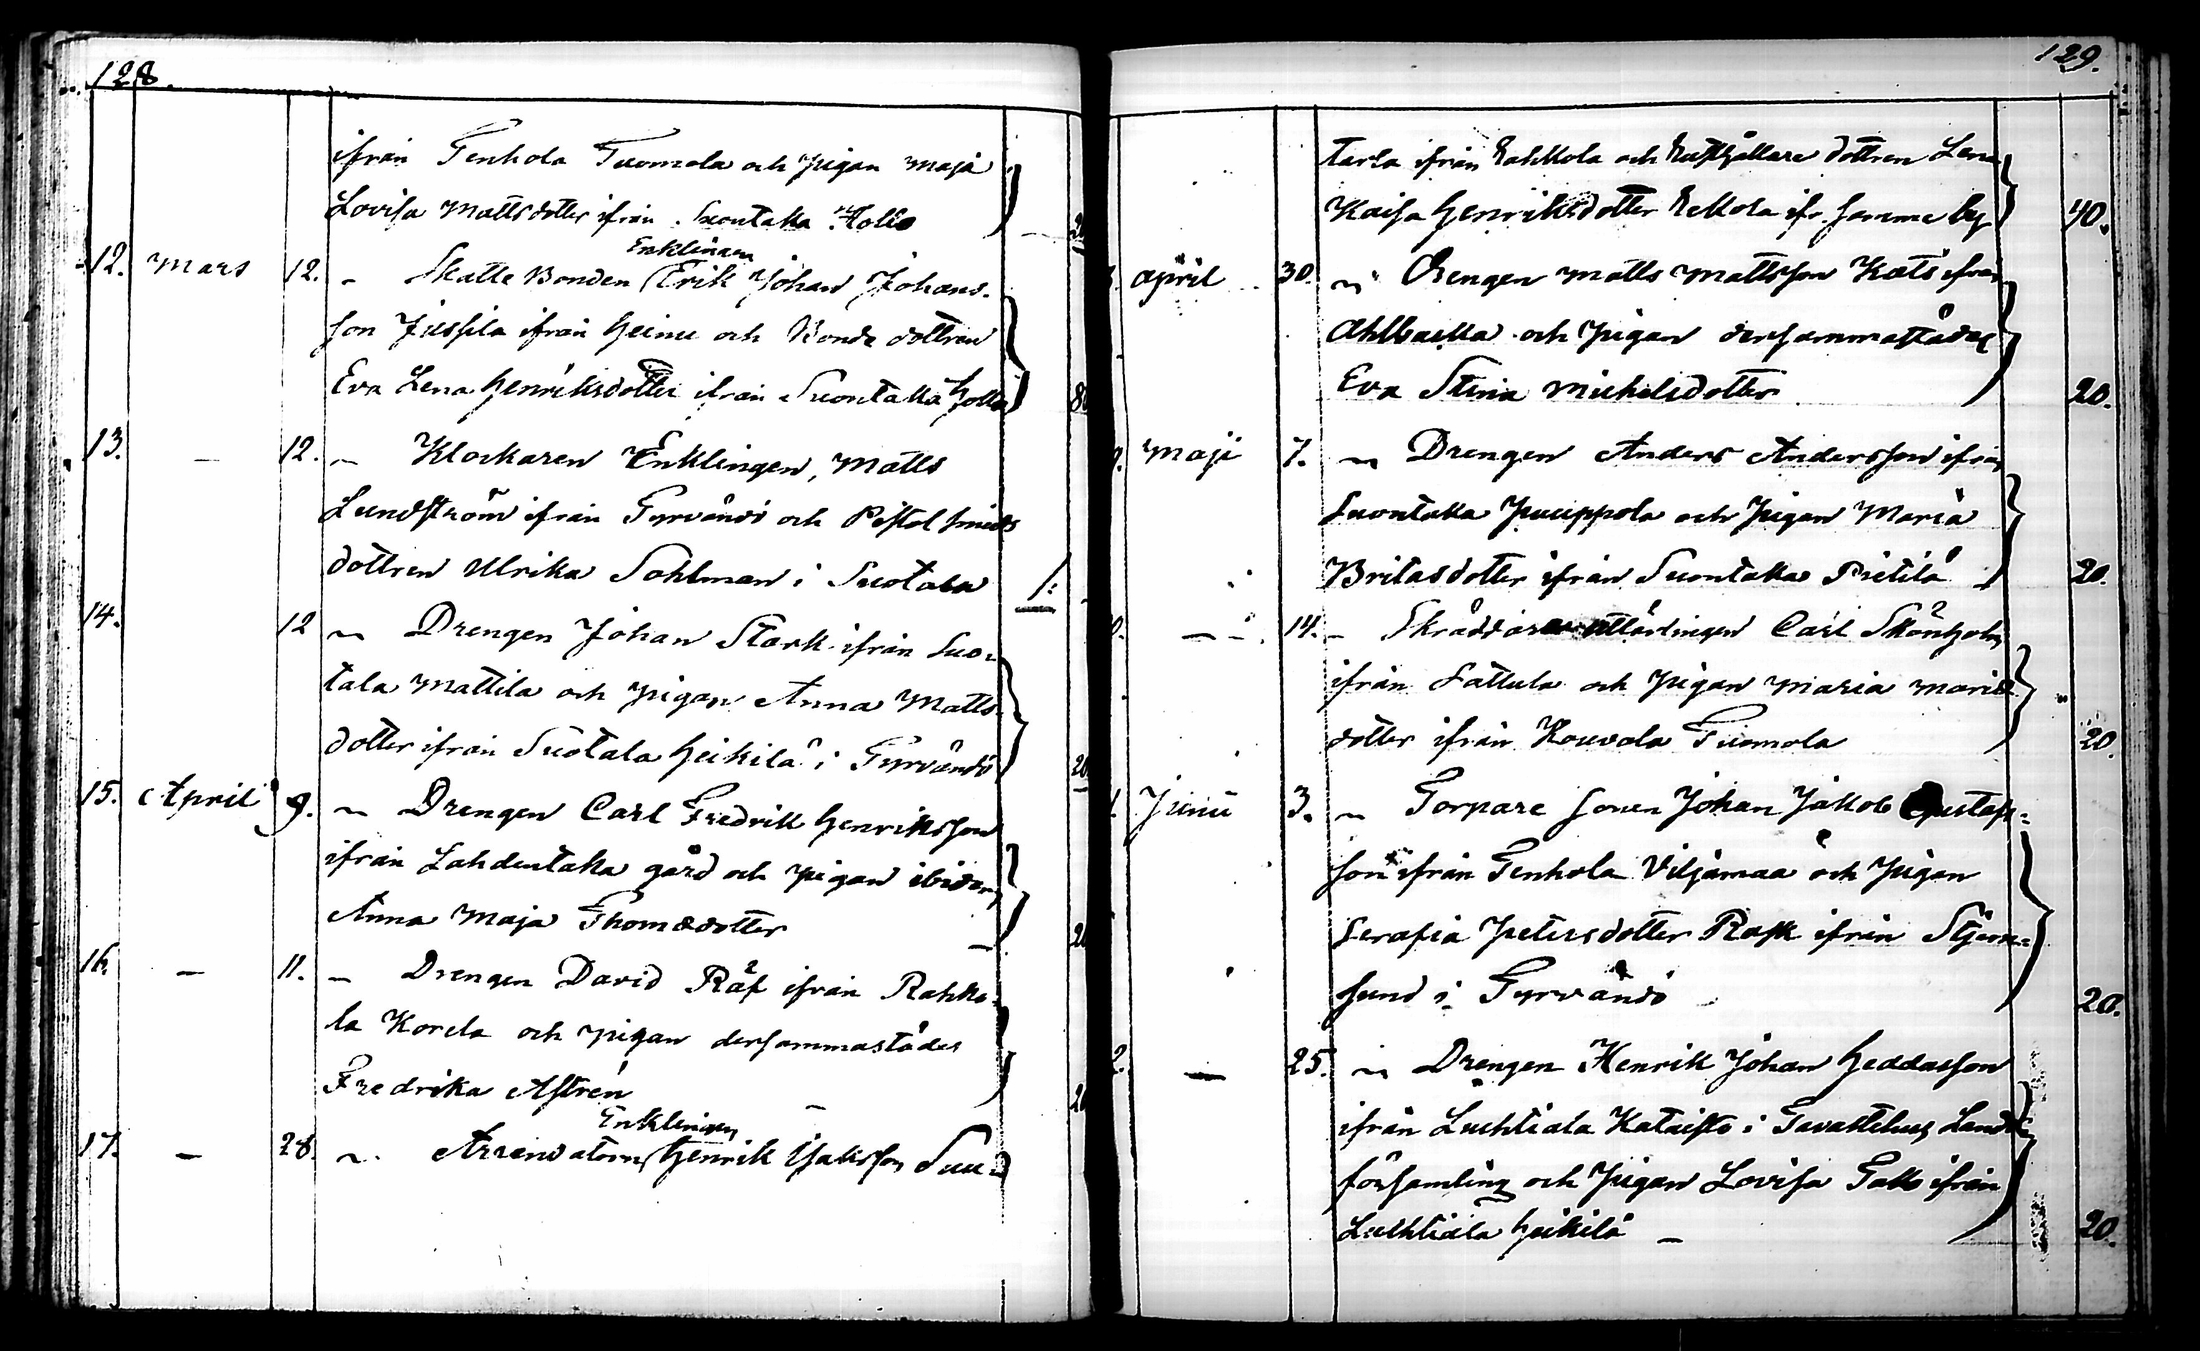 128.
ifrån Tenhola Tuomola och pigan Maja
Lovisa Mattsdotter ifrån Suontaka Hollo
Enklingen
12. Mars 12. „ Skatte Bonden Erik Johan Johans-
son Jussila ifrån Heinu och Bonde dottren
Eva Lena Henriksdotter ifrån Suontaka Hollo 80
13. — 12. „ Klockaren Enklingen, Matts
Lundström ifrån Tyrvändö och Pistol smeds
dottren Ulrika Sohlman i Suotala 1:
14. 12 „ Drengen Johan Stark ifrån Suo-
tala Mattila och pigan Anna Matts-
dotter ifrån Suotala Heikilä i Tyrvändö 20
15. April 9. „ Drengen Carl Fredrik Henriksson
ifrån Lahdentaka gård och pigan ibidem
Anna Maja Thomasdotter — 20
16. — 11. „ Drengen David Räf ifrån Rahko-
la Korela och pigan dersammastädes
Fredrika Astrén — 20
Enklingen
17. — 28. „ Arrendatorn Henrik Isaksson Suu-
129.
tarla ifrån Rahkola och Rusthållare dottren Lena
Kaisa Henriksdotter Eekola ifr. samma by 40.
April 30. „ Drengen Matts Mattsson Kats ifrån
Ahlbacka och pigan dersammastädes
Eva Stina Michelsdotter 20.
9. Maji 7. „ Drengen Anders Andersson ifrån
Suontaka Puuppola och pigan Maria
Britasdotter ifrån Suontaka Pietilä 20.
0. — 14. „ Skräddare Carl Skönholm
ifrån Sattula och pigan Maria Marie
dotter ifrån Kouvola Tuomola 20
1. Junii 3. „ Torpare sonen Johan Jakob Gustafs-
son ifrån Tenhola Viljamaa och pigan
Serafia Petersdotter Rask ifrån Stjern-
sund i Tyrvändö 20.
2. — 25. „ Drengen Henrik Johan Heddasson
ifrån Luhtiala Kataisto i Tavastehus Lands
församling och pigan Lovisa Tall ifrån
Luhtiala Heikilä — 20.